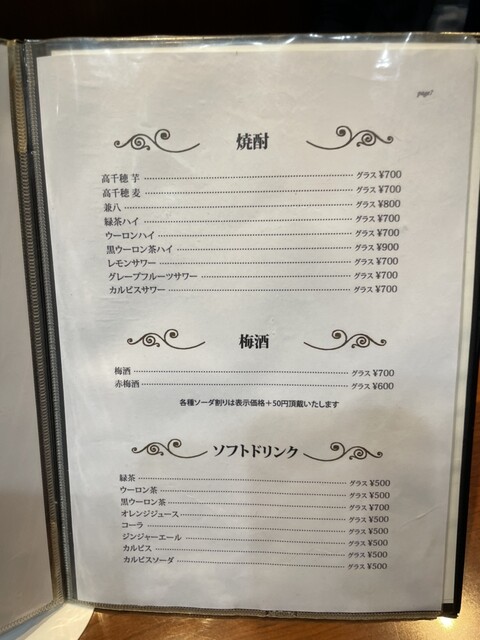 page7
焼酎
高千穂 芋 グラス ¥700
高千穂 麦 グラス ¥700
兼八 グラス ¥800
緑茶ハイ グラス ¥700
ウーロンハイ グラス ¥700
黒ウーロン茶ハイ グラス ¥900
レモンサワー グラス ¥700
グレープフルーツサワー グラス ¥700
カルピスサワー グラス ¥700
梅酒
梅酒 グラス ¥700
赤梅酒 グラス ¥600
各種ソーダ割りは表示価格+50円頂戴いたします
ソフトドリンク
緑茶 グラス ¥500
ウーロン茶 グラス ¥500
黒ウーロン茶 グラス ¥700
オレンジジュース グラス ¥500
コーラ グラス ¥500
ジンジャーエール グラス ¥500
カルピス グラス ¥500
カルピスソーダ グラス ¥500